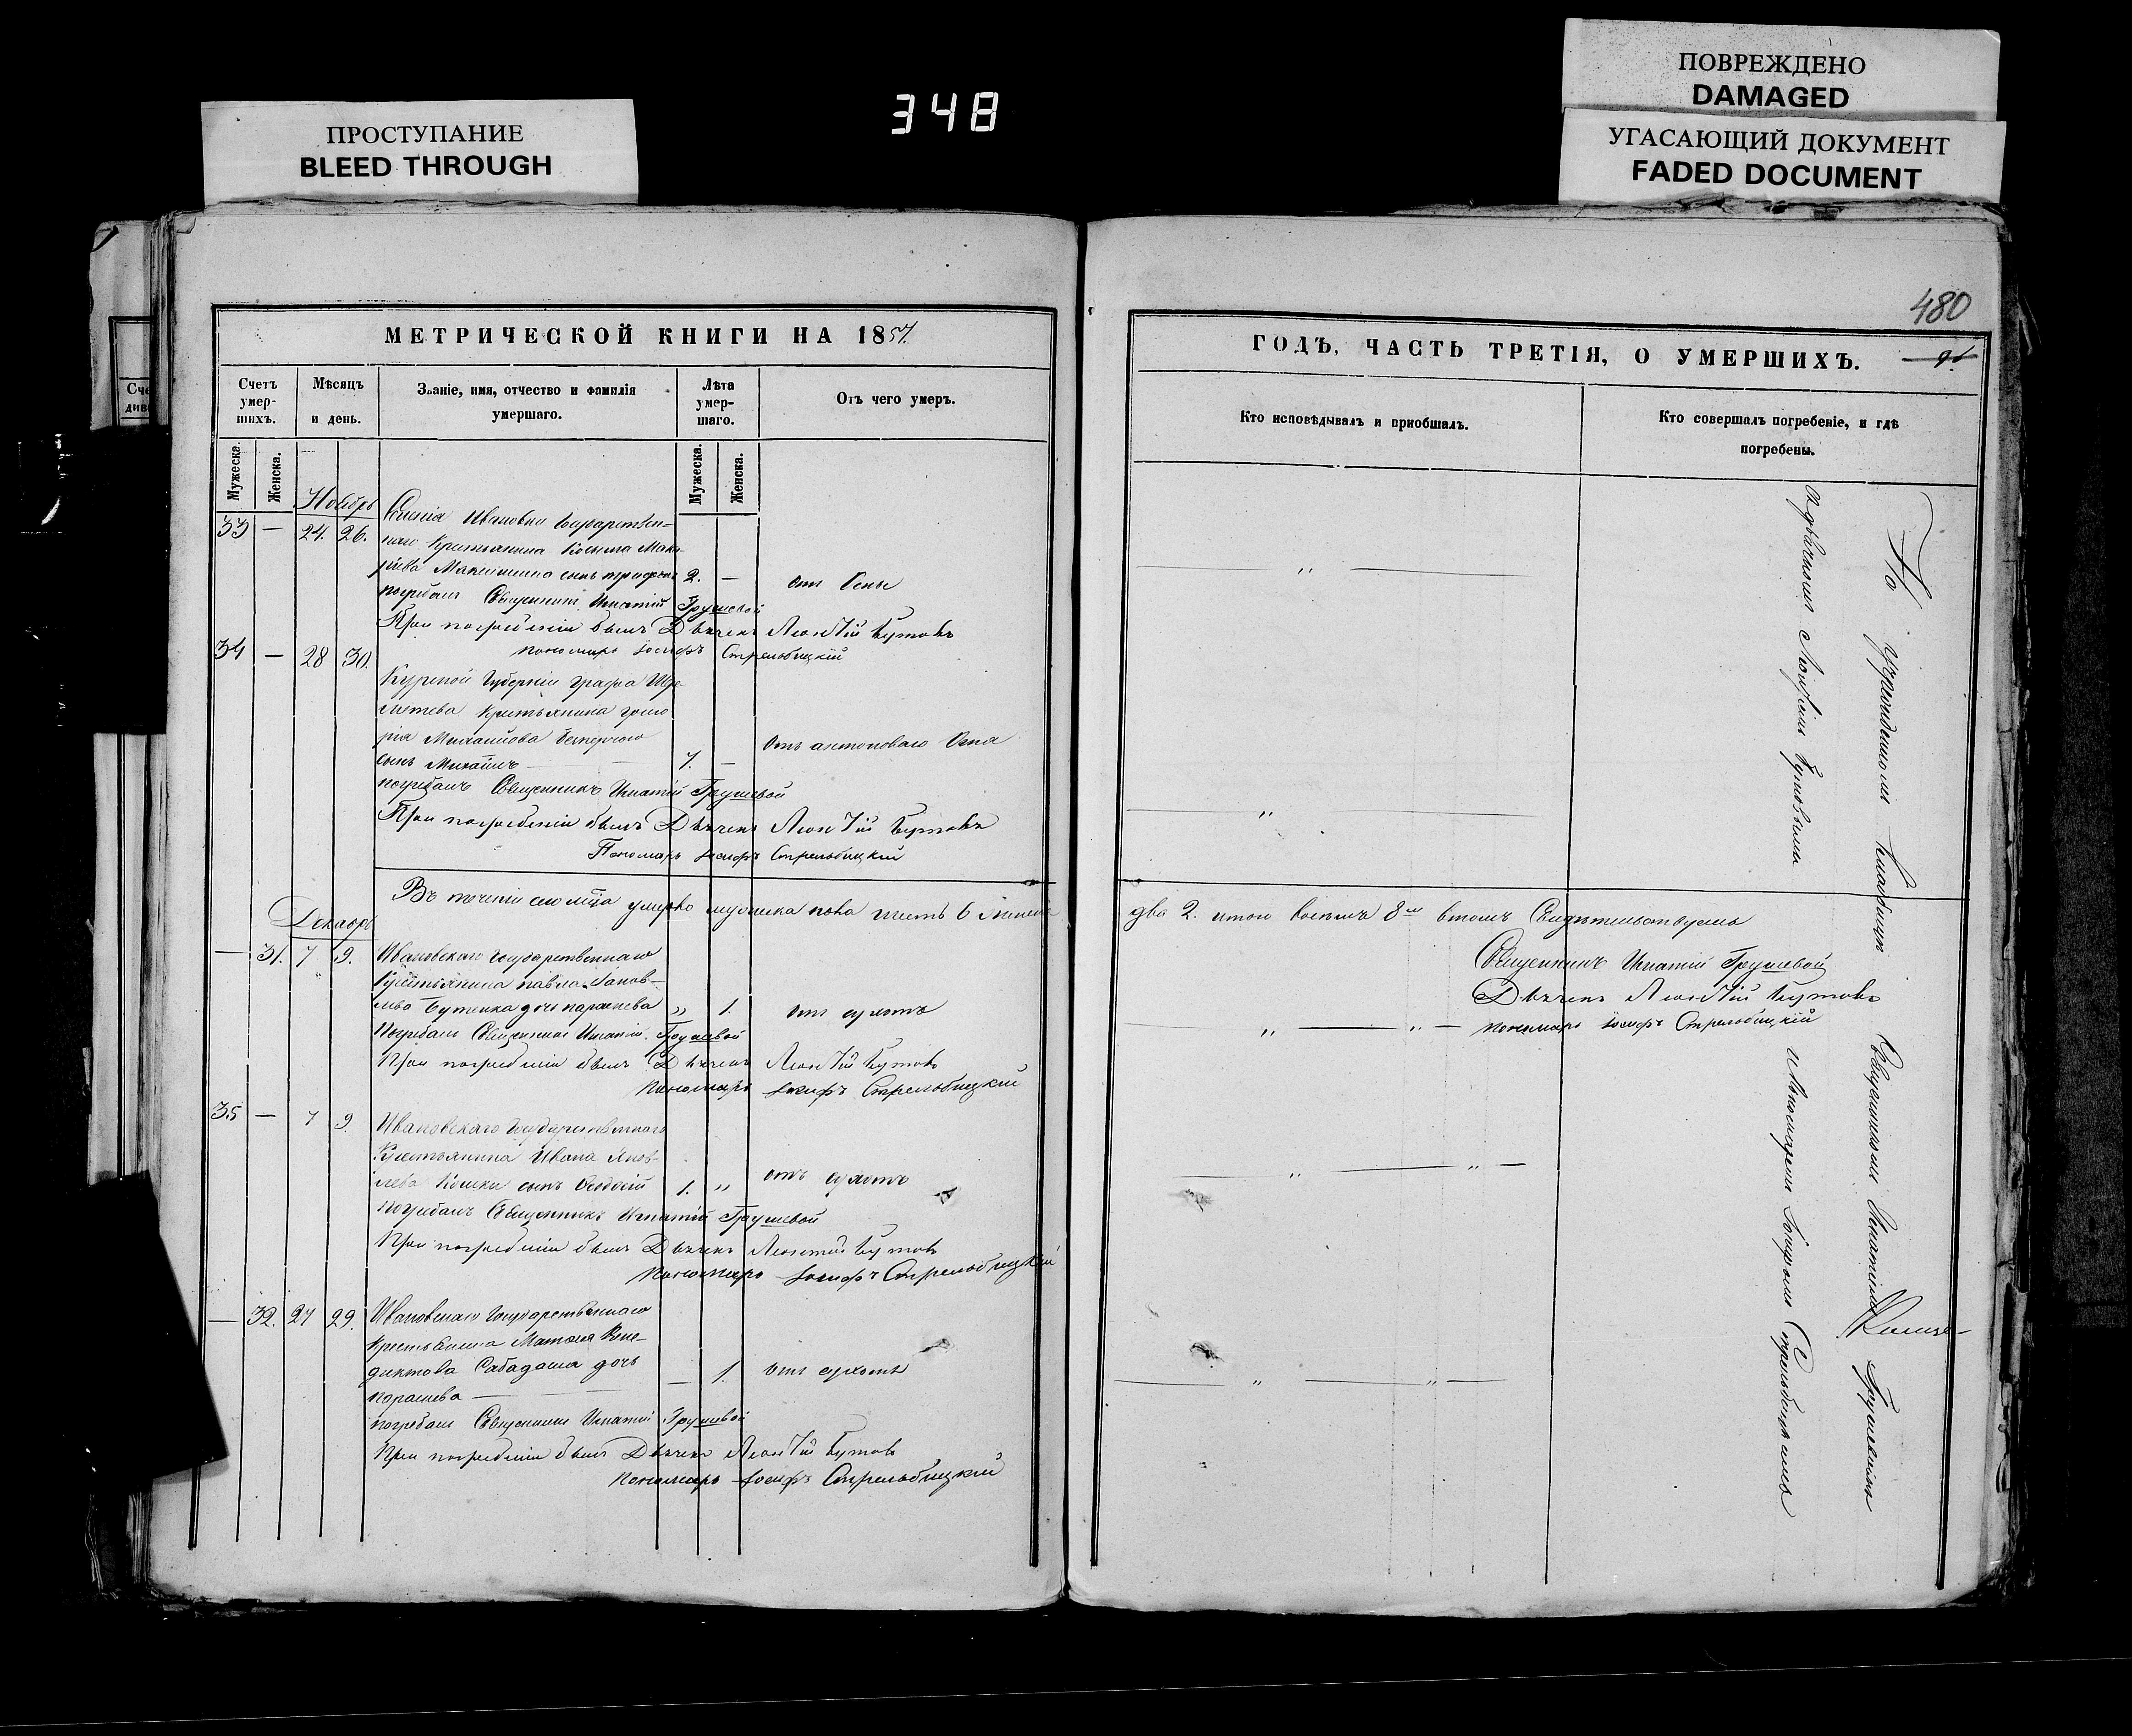 ПОВРЕЖДЕНО
DAMAGED
ПРОСТУПАНИЕ
BLEED THROUGH
348
УГАСАЮЩИЙ ДОКУМЕНТ
FADED DOCUMENT
480
МЕТРИЧЕСКОЙ КНИГИ НА 1857.
Счетъ умер-шихъ.
Мѣсяцъ и день.
Званіе, имя, отчество и фамилія умершаго.
Лѣта умер-шаго.
Отъ чего умеръ.
Мужеска.
Женска.
Мужеска.
Женска.
Ноябрь
33 — 24. 26.
Ивановки Государствен-
наго Крестьянина Косьма Мака-
2. —
погребалъ Священникъ Игнатій Грушевой
При погребеніи былъ Дьячекъ Леонтій Бутовъ
пономарь Іосифъ Стрельбицкій
34 — 28 30.
Курской Губерніи графа Шере-
метева Крестьянина
сынъ Михаилъ 7. —
погребалъ Священникъ Игнатій Грушевой
При погребеніи былъ Дьячекъ Леонтій Бутовъ
Пономарь Іосифъ Стрельбицкій
Въ теченіи сего мѣсяца умерло мужеска пола шесть 6 женска
Декабрь
— 31. 7 9. Ивановскаго Государственнаго
Крестьянина Павла Яков-
лева Бутенка дочь Параскева „ 1. отъ сухотъ
Погребалъ Священникъ Игнатій Грушевой
При погребеніи былъ Дьячекъ Леонтій Бутовъ
Пономарь Іосифъ Стрельбицкій
35 — 7 9. Ивановскаго Государственнаго
Крестьянина Ивана Яков-
лева Кошки сынъ Феодосій 1. „ отъ сухотъ
Погребалъ Священникъ Игнатій Грушевой
При погребеніи былъ Дьячекъ Леонтій Бутовъ
Пономарь Іосифъ Стрельбицкій
— 32. 27 29. Ивановскаго Государственнаго
Крестьянина Матвея Вене-
диктова Сабадаша дочь
Параскева — 1. отъ сухотъ
погребалъ Священникъ Игнатій Грушевой
При погребеніи былъ Дьячекъ Леонтій Бутовъ
Пономарь Іосифъ Стрельбицкій
ГОДЪ, ЧАСТЬ ТРЕТІЯ, О УМЕРШИХЪ.
Кто исповѣдывалъ и пріобщалъ.
Кто совершалъ погребеніе, и гдѣ погребены.
два 2. итого восемь 8 въ томъ Свидѣтельствуемъ
Священникъ Игнатій Грушевой
Дьячекъ Леонтій Бутовъ
пономарь Іосифъ Стрельбицкій
На кладбищѣ Священникомъ Игнатіемъ Грушевымъ
съ дьячкомъ Леонтіемъ Бутовымъ и Пономаремъ Іосифомъ Стрельбицкимъ